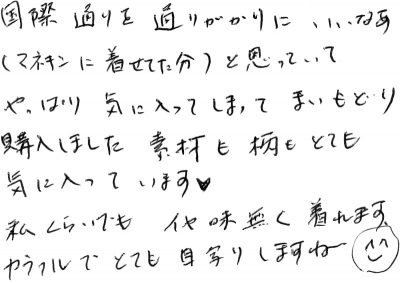 国際通りを通りがかりに いいなあ
(マネキンに着せてた分)と思っていて
やっぱり気に入ってしまって まいもどり
購入しました 素材も柄もとても
気に入っています♥
私くらいでも イヤ味無く着れます
カラフルでとても目写りしますねー